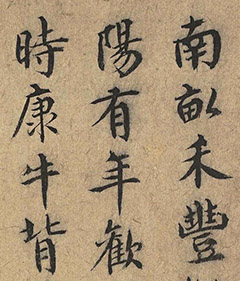 南畝禾豐
陽有年歡
時康牛背